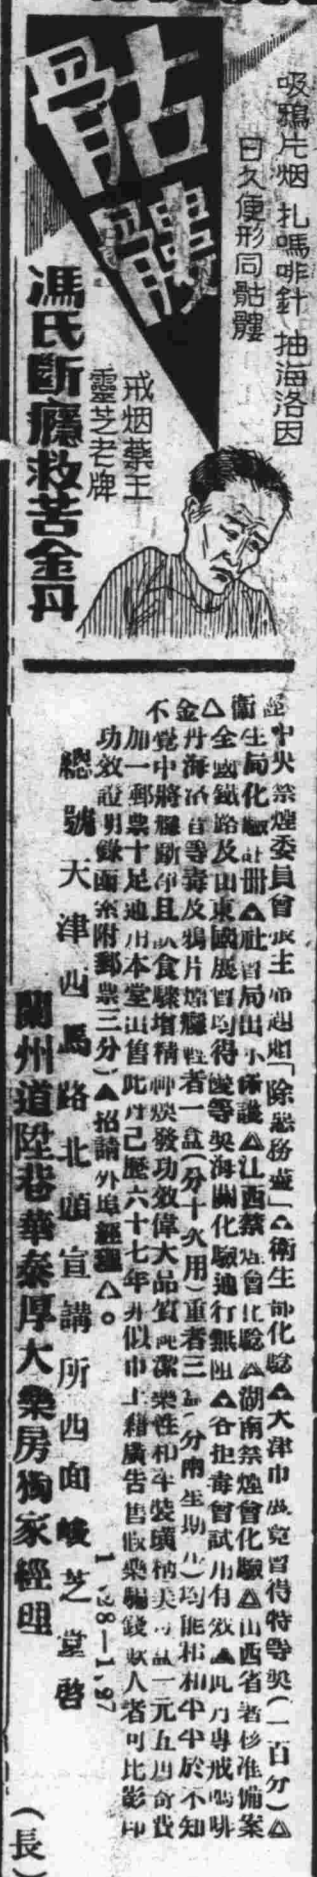 吸鴉片烟 扎嗎啡針 抽海洛因
日久便形同骷髏
骷髏
戒烟藥王
靈芝老牌
馮氏斷癮救苦金丹
中央禁煙委員會 主 「除惡務盡」△衛生部化驗△大津市 覽會得特等奖(一百分)△
衛生局化驗註册△社會局出 △江西禁烟會化驗△湖南禁煙會化驗△山西省署 准備案
△全國鐵路及山東國展會均得優等奖海關化驗通行無阻△各拒毒會試用有效▲此丹專戒嗎啡
金丹海洛因等毒及鴉片煙癮輕者一盒(分十次用)重者三盒 均能和和平平於不知
不覺中將癮斷净且飲食驟增精神焕發功效偉大品質 潔藥性和平裝璜 美每盒一元五角奇費
加一郵票十足通用本堂出售此丹已歷六十七年 似市上藉廣告售假藥騙錢欺人者可比彭印
功效證明錄函索附郵票三分)▲招請外埠經理△。
總號天津西馬路北頭宣講所西面峻芝堂啓
1,28—1,97
蘭州道陞巷華泰厚大藥房獨家經理
(長)